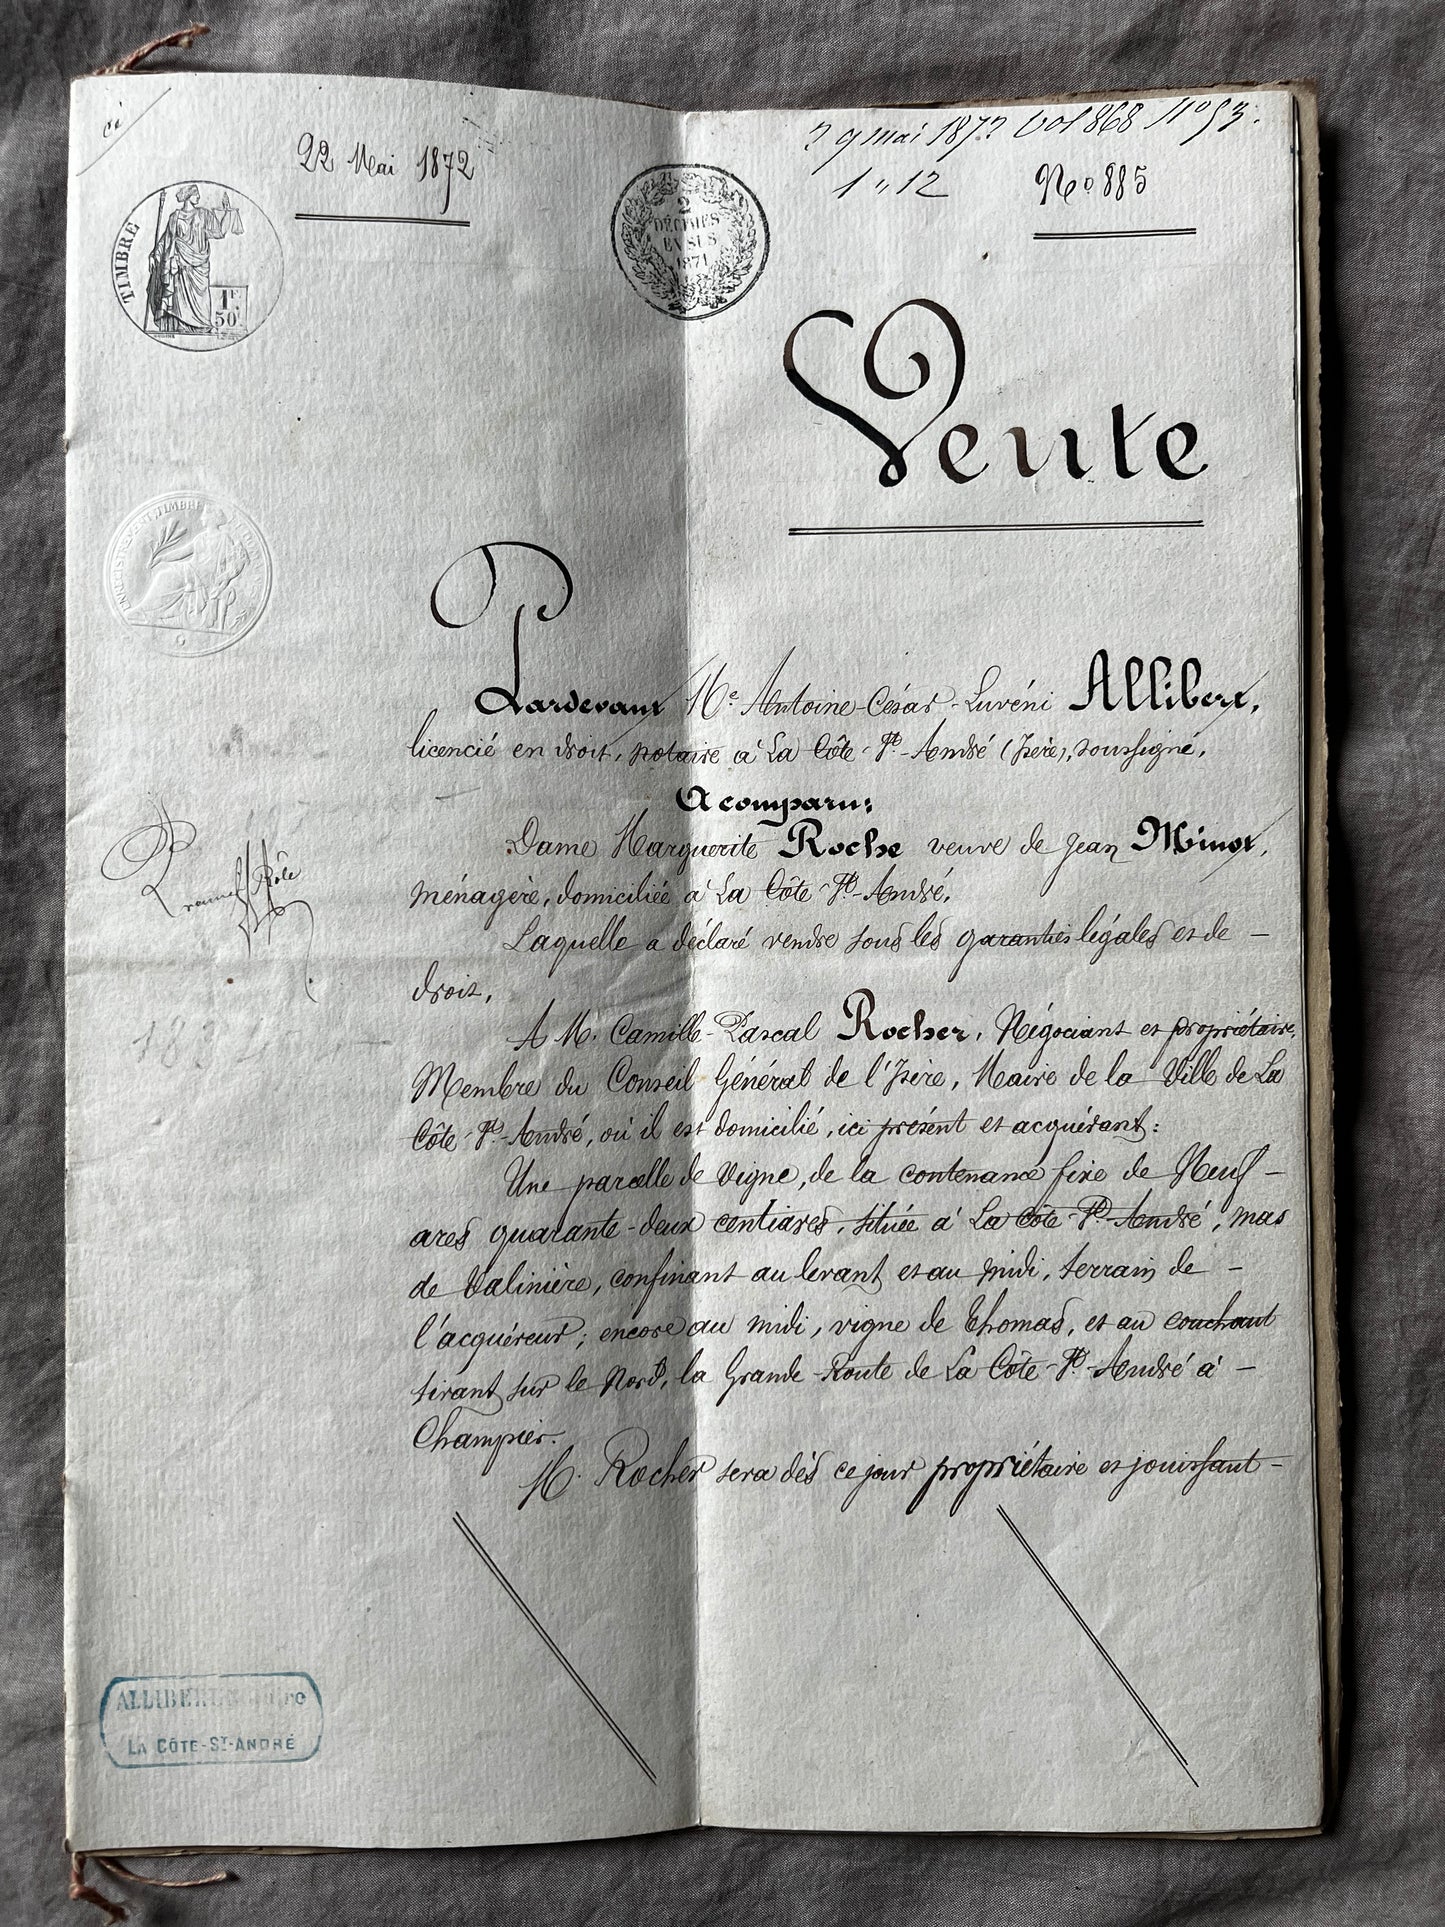 22 Mai 1872
29 mai 1872 Vol 868 N° 53.
1 " 12
N° 885
TIMBRE
1F.
50c
2
DÉCIMES
EN SUS
1871
Vente
TIMBRE
Pardevant Me. Antoine-César-Luvéni Allibert,
licencié en droit, notaire à La Côte-St-André (Isère), soussigné,
A comparu:
Dame Marguerite Roche veuve de Jean Minot,
ménagère, domiciliée à La Côte-St-André,
Laquelle a déclaré vendre sous les garanties légales et de –
droit,
A M. Camille-Pascal Rocher, Négociant et propriétaire,
Membre du Conseil Général de l'Isère, Maire de la Ville de La
Côte-St-André, où il est domicilié, ici présent et acquérant:
Une parcelle de vigne, de la contenance fixe de Neuf –
ares quarante-deux centiares, située à La Côte-St-André, mas
de Valinière, confinant au levant et au midi, terrain de –
l'acquéreur; encore au midi, vigne de Thomas, et au couchant
tirant sur le Nord, la Grande-Route de La Côte-St-André à –
Champier.
M. Rocher sera dès ce jour propriétaire et jouissant –
Rôle
ALLIBERT Notaire
LA CÔTE-ST-ANDRÉ